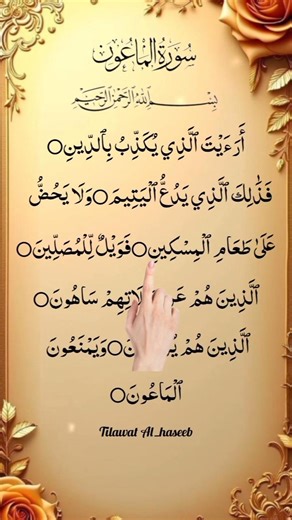 سُورَةُ الْمَاعُونِ
بِسْمِ اللهِ الرَّحْمٰنِ الرَّحِيْمِ
أَرَءَيْتَ ٱلَّذِي يُكَذِّبُ بِٱلدِّينِ○
فَذَٰلِكَ ٱلَّذِي يَدُعُّ ٱلْيَتِيمَ○وَلَا يَحُضُّ
عَلَىٰ طَعَامِ ٱلْمِسْكِينِ○فَوَيْلٌ لِّلْمُصَلِّينَ○
ٱلَّذِينَ هُمْ سَاهُونَ○
ٱلَّذِينَ هُمْ ○وَيَمْنَعُونَ
ٱلْمَاعُونَ○
Tilawat Al_haseeb